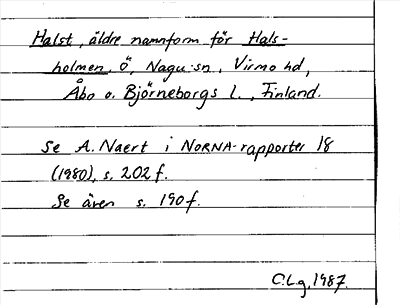 Halst, äldre namnform för Hals-
holmen, ö, Nagu sn, Virmo hd,
Åbo o. Björneborgs l., Finland.
Se A. Naert i NORNA-rapporter 18
(1980), s. 202 f.
Se även s. 190 f.
C.L-g, 1987.